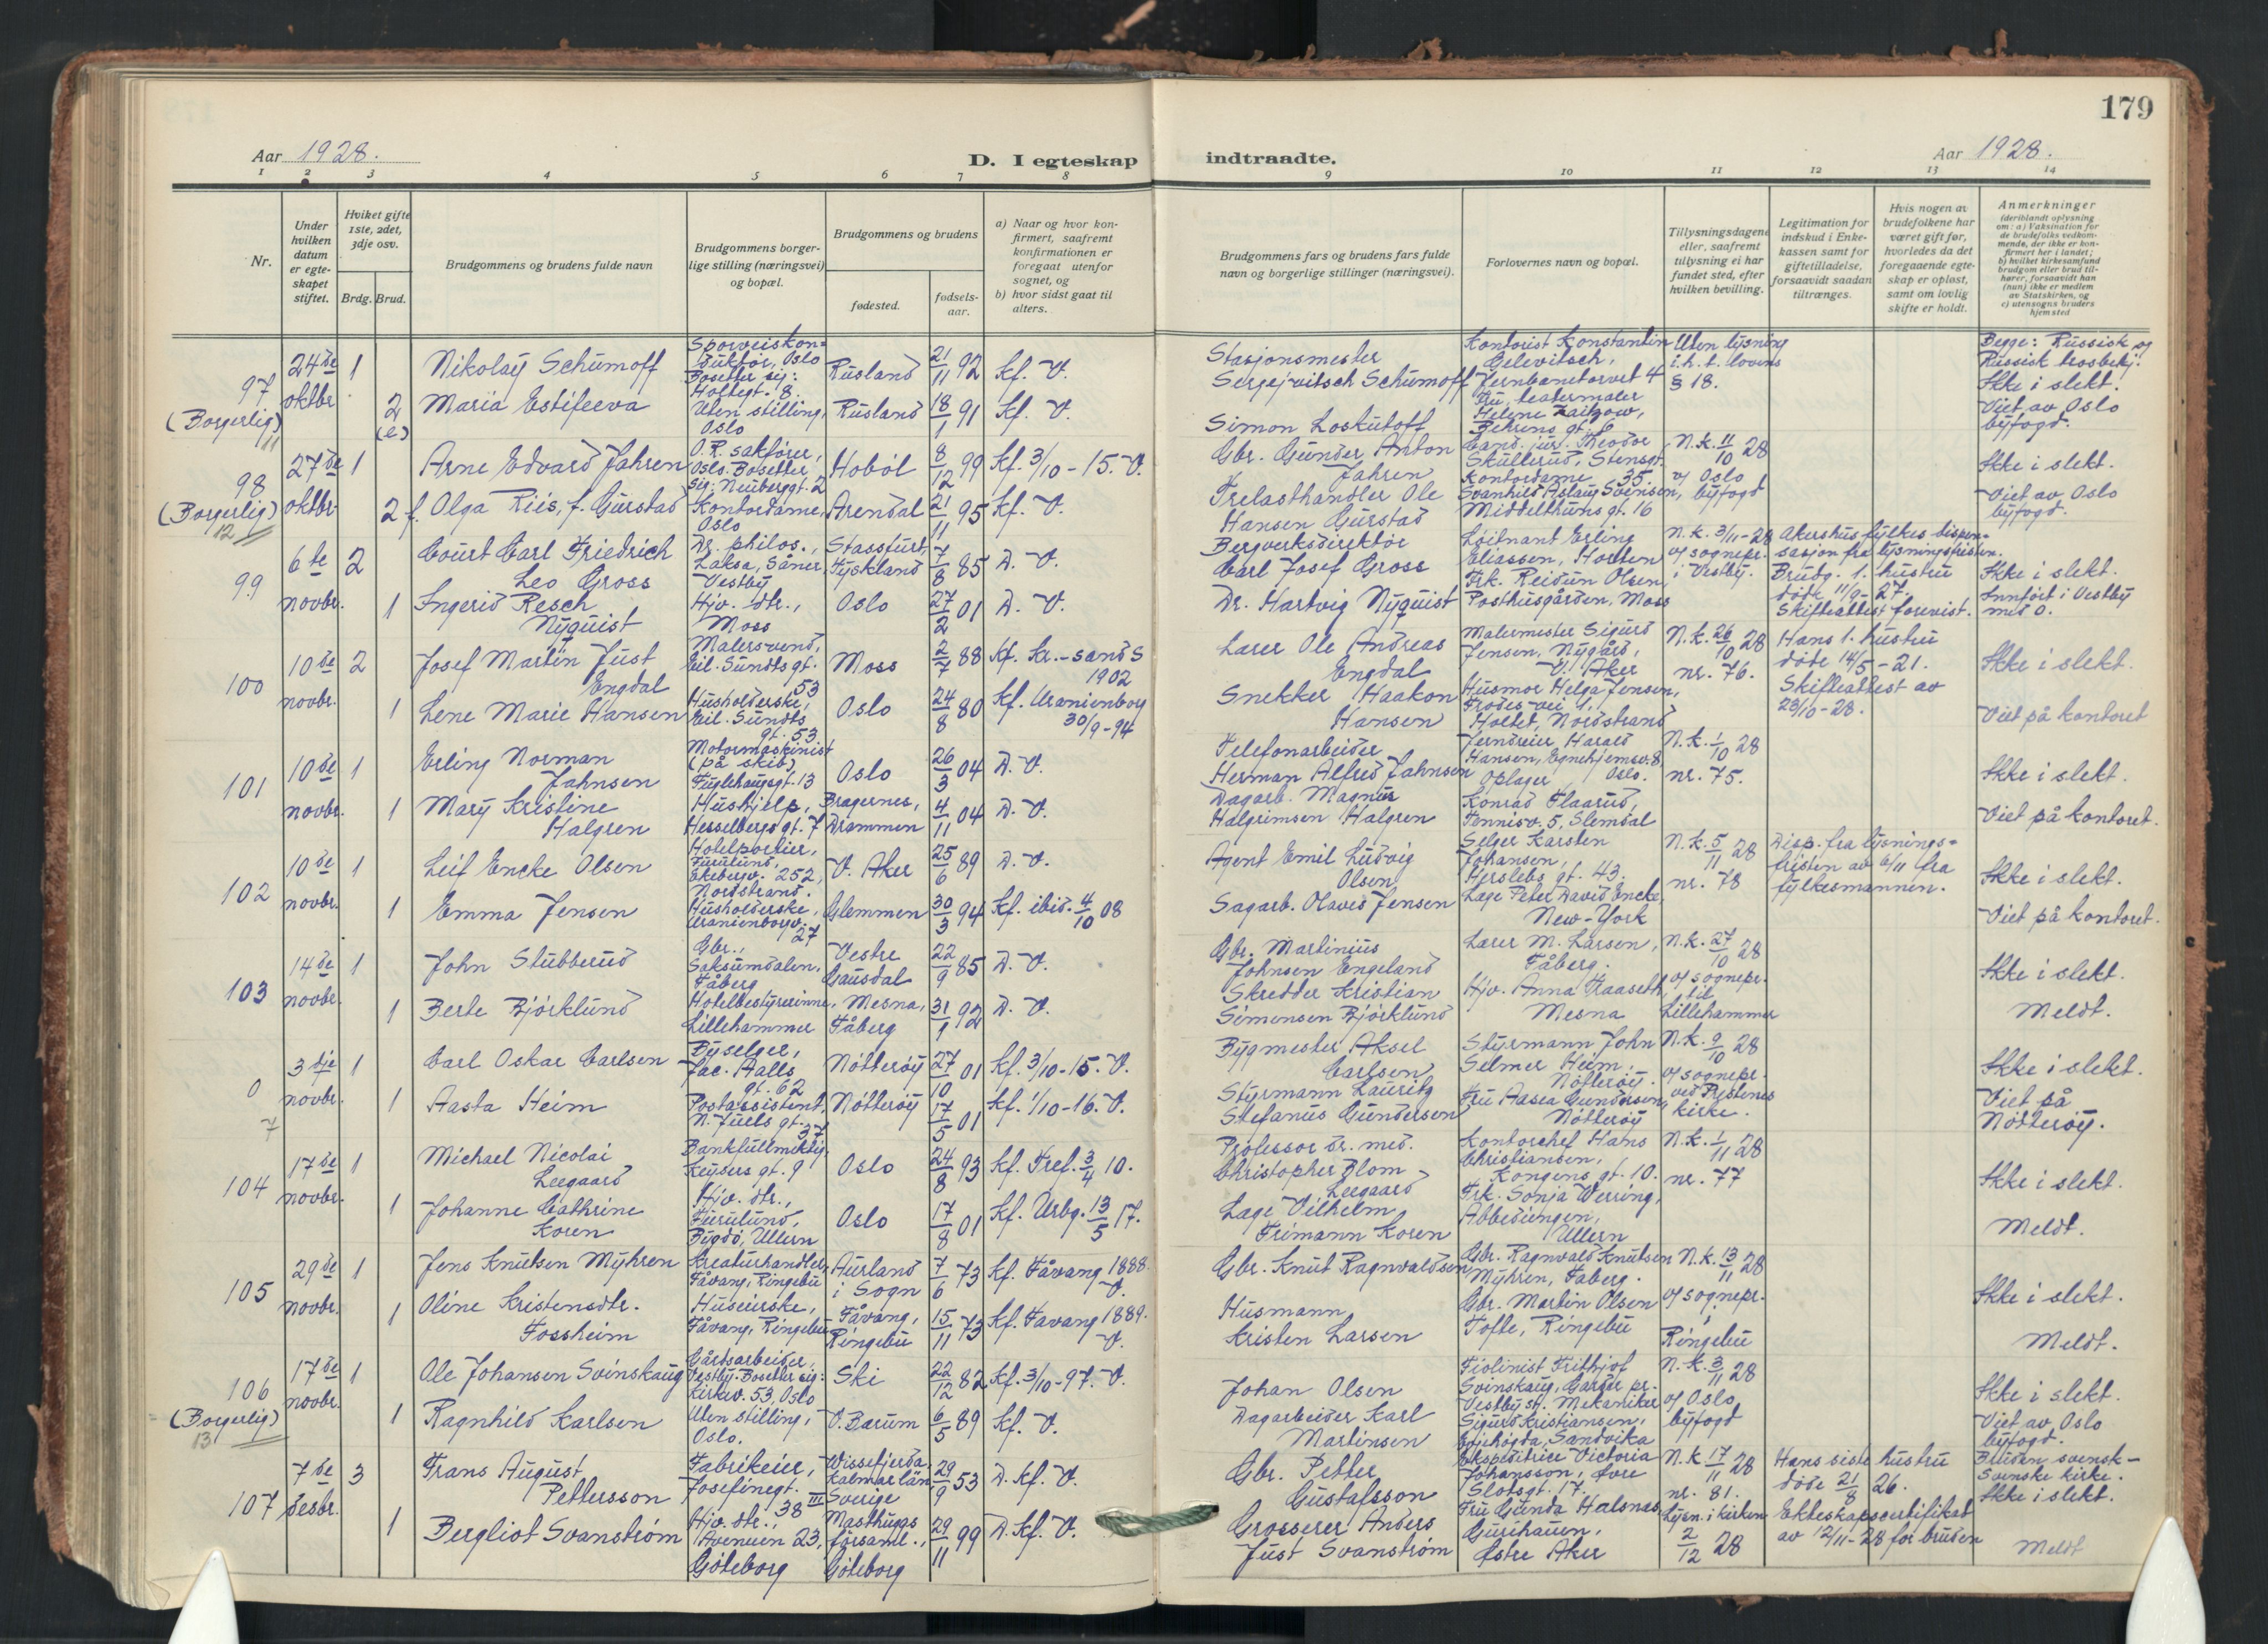 179
Aar 1928.
D. I egteskap
indtraadte.
Aar 1928.
1 2 3 4 5 6 7 8 9 10 11 12 13 14
Nr.
Under hvilken datum er egteskapet stiftet.
Hviket gifte 1ste, 2det, 3dje osv.
Brdg. Brud.
Brudgommens og brudens fulde navn
Brudgommens borgerlige stilling (næringsvei) og bopæl.
Brudgommens og brudens
fødested.
fødselsaar.
a) Naar og hvor konfirmert, saafremt konfirmationen er foregaat utenfor sognet, og
b) hvor sidst gaat til alters.
Brudgommens fars og brudens fars fulde navn og borgerlige stillinger (næringsvei).
Forlovernes navn og bopæl.
Tillysningsdagene eller, saafremt tillysning ei har fundet sted, efter hvilken bevilling.
Legitimation for indskud i Enkekassen samt for giftetilladelse, forsaavidt saadan tiltrænges.
Hvis nogen av brudefolkene har været gift før, hvorledes da det foregaaende egteskap er opløst, samt om lovlig skifte er holdt.
Anmerkninger
(deriblandt oplysning om: a) Vaksination for de brudefolks vedkommende, der ikke er konfirmert her i landet; b) hvilket kirkesamfund brudgom eller brud tilhører, forsaavidt han (hun) ikke er medlem av Statskirken, og c) utensogns bruders hjemsted
97
(Borgerlig)
11
24de oktbr.
1
Nikolay Schumoff
Sporveiskonduktør, Oslo
Bosetter sig: Holtegt. 8.
Rusland
21/11 92
Kf. V.
Stasjonsmester
Sergejvitsch Schumoff
Kontorist Konstantin
Gelevitsch,
Jernbanetorvet 4
Uten lysning
i.h.t. lovens
§ 18.
Begge: Russisk og
Russisk trosbekj.
Ikke i slekt.
2
(e)
Maria Estifeeva
Uten stilling,
Oslo
Rusland
18/1 91
Kf. V.
Simon Loskutoff
Fru, teatermaler
Helene Zaitzow,
Behrens gt. 6
Viet av Oslo
byfogd.
98
(Borgerlig)
12
27de oktbr.
1
Arne Edvard Jahren
O.R. sakfører,
Oslo. Bosetter
sig: Neuberggt. 2
Hobøl
8/12 99
Kf. 3/10-15. V.
Gbr. Gunder Anton
Jahren
Cand. jur. Theodor
Skullerud, Stensgt.
35.
N.k. 11/10 28
v/ Oslo
byfogd
Ikke i slekt.
2 f.
Olga Riis, f. Gurstad
Kontordame,
Oslo
Arendal
21/11 95
Kf. V.
Trelasthandler Ole
Hansen Gurstad
Kontordame
Svanhild Aslaug Svensen,
Middelthuns gt. 16
Viet av Oslo
byfogd.
99
6te novbr.
2
Court Carl Friedrich
Leo Gross
Dr. philos.,
Laksa, Såner,
Vestby
Stassfurt,
Tyskland
7/8 85
D. V.
Bergverksdirektør
Carl Josef Gross
Løitnant Erling
Eliassen, Holten
N.k. 3/11-28
v/ sognepr.
i Vestby.
Akershus fylkes dispensasjon fra lysningsfristen.
Brudg. 1. hustru
døde 11/9-27.
Skifteattest forevist.
Ikke i slekt.
Innført i Vestby
med 0.
1
Ingerid Resch
Nyquist
Hjv. dtr.,
Moss
Oslo
27/2 01
D. V.
Dr. Hartvig Nyquist
Frk. Reidun Olsen,
Posthusgården, Moss
100
10de novbr.
2
Josef Martin Just
Engdal
Malersvend,
Eil. Sundts gt.
53
Moss
2/7 88
Kf. Kr.-sand S
1902
Lærer Ole Andreas
Engdal
Malermester Sigurd
Jensen, Nygård,
V. Aker
N.k. 26/10 28
nr. 76.
Hans 1. hustru
døde 14/5-21.
Skifteattest av
23/10-28.
Ikke i slekt.
1
Lene Marie Hansen
Husholderske,
Eil. Sundts
gt. 53
Oslo
24/8 80
Kf. Uranienborg
30/9-94
Snekker Haakon
Hansen
Husmor Helga Jensen,
Frodes vei 1,
Holtet, Nordstrand
Viet på kontoret
101
10de novbr.
1
Erling Norman
Jahnsen
Motormaskinist
(på skib)
Fuglehaugsgt. 13
Oslo
26/3 04
D. V.
Telefonarbeider
Herman Alfred Jahnsen
Jerndreier Harald
Hansen, Egnehjemsv. 8
Oslo.
N.k. 1/10 28
nr. 75.
Ikke i slekt.
1
Mary Kristine
Halgren
Hushjelp,
Hesselbergs gt. 7
Bragernes,
Drammen
4/11 04
D. V.
Dagarb. Magnus
Halgrimsen Halgren
Oplager
Konrad Flaarud,
Tennisv. 5, Slemdal
Viet på kontoret.
102
10de novbr.
1
Leif Encke Olsen
Hotelportier,
Furulund,
Ekebergv. 252,
Nordstrand.
V. Aker
25/6 89
D. V.
Agent Emil Ludvig
Olsen
Selger Karsten
Johansen,
Herslebs gt. 43.
N.k. 5/11 28
nr. 78
Disp. fra lysningsfristen av 6/11 fra
fylkesmannen.
Ikke i slekt.
1
Emma Jensen
Husholderske,
Uranienborgv.
27
Glemmen
30/3 94
Kf. ibid. 4/10 08
Sagarb. Olaves Jensen
Læge Peter David Encke,
New-York
Viet på kontoret.
103
14de novbr.
1
John Stubberud
Gbr.,
Saksumdalen,
Fåberg
Vestre
Gausdal
22/9 85
D. V.
Gbr. Martinius
Johnsen Engeland
Lærer M. Larsen,
Fåberg.
N.k. 27/10 28
v/ sognepr.
til
Lillehammer
Ikke i slekt.
1
Berte Bjørklund
Hotelbestyrerinne,
Lillehammer
Mesna,
Fåberg
31/1 92
D. V.
Skredder Kristian
Simensen Bjørklund
Hjv. Anna Fraaseth,
Mesna
Meldt.
0
7
3dje novbr.
1
Carl Oskar Carlsen
Byselger,
Jac. Aalls
gt. 62
Nøtterøy
27/10 01
Kf. 3/10-15. V.
Bygmester Aksel
Carlsen
Styrmann John
Selmer Heim,
Nøtterøy.
N.k. 9/10 28
v/ sognepr.
ved Fristenes
kirke.
Ikke i slekt.
1
Aasta Heim
Postassistent,
N. Juels gt.
37
Nøtterøy
17/5 01
Kf. 1/10-16. V.
Styrmann Lauritz
Stefanus Gundersen
Fru Aasea Gundersen,
Nøtterøy
Viet på
Nøtterøy.
104
17de novbr.
1
Michael Nicolai
Leegaard
Bankfullmektig,
Keysers gt. 9
Oslo
24/8 93
Kf. Tref. 3/4 10.
Professor dr. med.
Christopher Blom
Leegaard
Kontorchef Hans
Christiansen,
Kongens gt. 10.
N.k. 1/11 28
nr. 77
Ikke i slekt.
1
Johanne Cathrine
Koren
Hjv. dtr.,
Furulund,
Bygdø, Ullern
Oslo
17/8 01
Kf. Urbg. 13/5 17.
Læge Vilhelm
Frimann Koren
Frk. Sonja Werring,
Abbediengen,
Ullern
Meldt.
105
29de novbr.
1
Jens Knutsen Myhren
Kreaturhandler,
Fåvang, Ringebu
Aurland
i Sogn
7/6 73
Kf. Fåvang 1888.
V.
Gbr. Knut Ragnvaldsen
Gbr. Ragnvald Knutsen
Myhren, Faberg.
N.k. 13/11 28
v/ sognepr.
i
Ringebu
Ikke i slekt.
1
Oline Kristensdtr.
Fossheim
Huseierske,
Fåvang, Ringebu
Fåvang,
Ringebu
15/11 73
Kf. Favang 1889.
V.
Husmann
Kristen Larsen
Gbr. Martin Olsen
Tofte, Ringebu
Meldt.
106
(Borgerlig)
13
17de novbr.
1
Ole Johansen Svinskaug
Gårdsarbeider,
Vestby. Bosetter sig:
Kirkev. 53, Oslo
Ski
22/12 82
Kf. 3/10-97. V.
Johan Olsen
Fiolinist Frithjof
Svinskaug, Garder pr.
Vestby st.
N.k. 3/11 28
v/ Oslo
byfogd
Ikke i slekt.
1
Ragnhild Karlsen
Uten stilling,
Oslo.
V. Bærum
6/5 89
Kf. V.
Dagarbeider Karl
Martinsen
Mekaniker
Sigurd Kristiansen,
Sandvika
Viet av Oslo
byfogd.
107
7de desbr.
3
Frans August
Pettersson
Fabrikeier,
Josefinegt.
38 III
Wissefjerda,
Kalmar län,
Sverige
29/9 53
D. Kf. V.
Gbr. Petter
Gustafsson
Ekspeditrice Victoria
Johansson, Øvre
Slotsgt. 17.
N.k. 17/11 28
nr. 81.
Hans siste hustru
døde 21/8 26.
Bruden svensk-
Svenske kirke.
Ikke i slekt.
1
Bergliot Svanstrøm
Hjv. dtr.,
Avenuen 23,
Göteborg
Masthuggs
församl.,
Göteborg
29/11 99
D. Kf. V.
Grosserer Anders
Just Svanstrøm
Fru Gunda Halsnæs,
Østre Aker
Lysn. i kirken
2/12 28
Ekteskapscertifikat
av 12/11-28 for bruden
Meldt